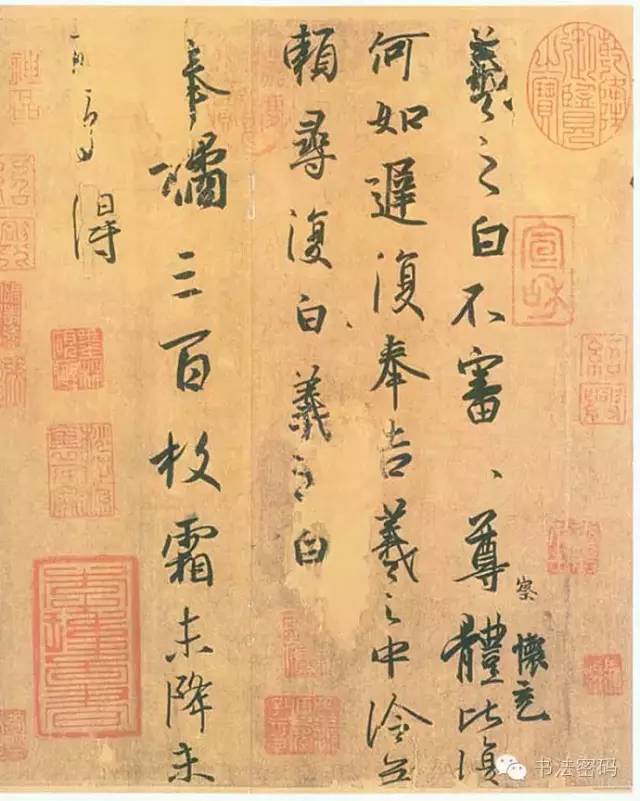 羲之白不審、尊體比復
察
懷充
何如遲復奉告羲之中冷無
賴尋復白羲之白
奉橘三百枚霜未降未
可多得
宣和
紹興
神品
书法密码